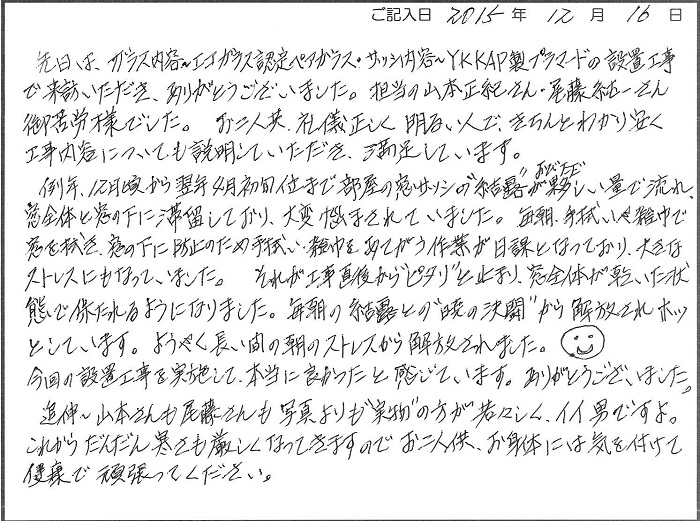 ご記入日 2015 年 12 月 16 日
先日は、ガラス内容~エコガラス認定ペアガラス・サッシ内容~YKKAP製プラマードの設置工事
で来訪いただき、ありがとうございました。担当の山本正紀さん・尾藤紘一さん
御苦労様でした。お二人共、礼儀正しく明るい人で、きちんとわかり安く
工事内容についても説明していただき、満足しています。
例年、12月頃から翌年4月初旬位まで部屋の窓サッシの"結露"が夥しい量で流れ、
おびただ
窓全体と窓の下に滞留しており、大変悩まされていました。毎朝、手拭いや雑巾で
窓を拭き、窓の下に防止のため手拭い・雑巾をあてがう作業が日課となっており、大きな
ストレスにもなっていました。それが工事直後から"ピタリ"と止まり、窓全体が乾いた状
態で保たれるようになりました。毎朝の結露との"暁の決闘"から解放されホッ
としています。ようやく長い間の朝のストレスから解放されました。
今回の設置工事を実施して、本当に良かったと感じています。ありがとうございました。
追伸~山本さんも尾藤さんも写真よりも"実物"の方が若々しく、イイ男ですよ。
これからだんだん寒さも厳しくなってきますのでお二人供、お身体には気を付けて
健康で頑張ってください。